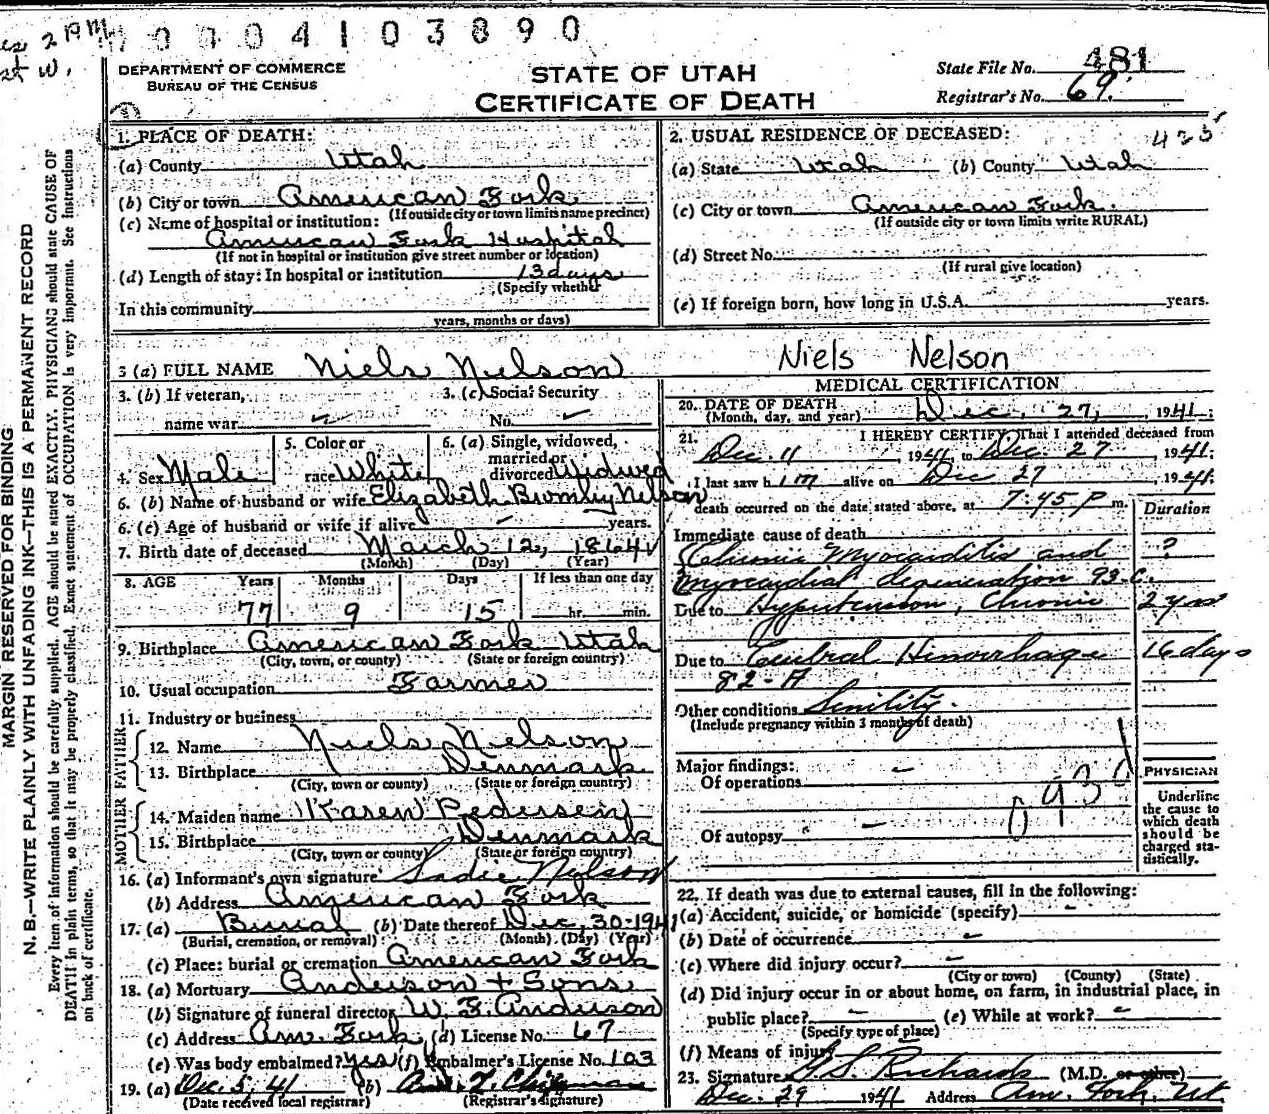 2 19
0 0 0 4 1 0 3 8 9 0
DEPARTMENT OF COMMERCE
BUREAU OF THE CENSUS
STATE OF UTAH
CERTIFICATE OF DEATH
State File No. 481
Registrar's No. 69.
425
1. PLACE OF DEATH:
(a) County Utah
(b) City or town American Fork
(If outside city or town limits name precinct)
(c) Name of hospital or institution:
American Fork Hospital
(If not in hospital or institution give street number or location)
(d) Length of stay: In hospital or institution 13 days
(Specify whether
In this community
years, months or days)
2. USUAL RESIDENCE OF DECEASED:
(a) State Utah (b) County Utah
(c) City or town American Fork.
(If outside city or town limits write RURAL)
(d) Street No.
(If rural give location)
(e) If foreign born, how long in U.S.A. years.
3 (a) FULL NAME Niels Nelson
Niels Nelson
3. (b) If veteran,
name war
3. (c) Social Security
No.
4. Sex Male
5. Color or
race White
6. (a) Single, widowed,
married or
divorced Widwed
6. (b) Name of husband or wife Elizabeth Bromley Nelson
6. (c) Age of husband or wife if alive - years.
7. Birth date of deceased March 12, 1864
(Month) (Day) (Year)
8. AGE Years Months Days If less than one day
77 9 15 hr. min.
9. Birthplace American Fork Utah
(City, town, or county) (State or foreign country)
10. Usual occupation Farmer
11. Industry or business
FATHER
12. Name Niels Nelson
13. Birthplace Denmark
(City, town or county) (State or foreign country)
MOTHER
14. Maiden name Karen Pedersen
15. Birthplace Denmark
(City, town or county) (State or foreign country)
16. (a) Informant's own signature Sadie Nelson
(b) Address American Fork
17. (a) Burial (b) Date thereof Dec, 30-1941
(Burial, cremation, or removal) (Month) (Day) (Year)
(c) Place: burial or cremation American Fork
18. (a) Mortuary Anderson + Sons
(b) Signature of funeral director W. F. Anderson
(c) Address Am. Fork (d) License No. 67
(e) Was body embalmed? yes (f) Embalmer's License No. 103
19. (a) Dec 5, 41 (b)
(Date received local registrar) (Registrar's signature)
MEDICAL CERTIFICATION
20. DATE OF DEATH
(Month, day, and year) Dec. 27, 1941:
21. I HEREBY CERTIFY, That I attended deceased from
Dec. 11 1941, to Dec. 27, 1941:
I last saw him alive on Dec 27, 1941:
death occurred on the date stated above, at 7:45 P m.
Duration
Immediate cause of death
Chronic Myocarditis and ?
Myocardial degeneration 93-C.
Due to Hypertension, Chronic 2 yrs
Due to Cerebral Hemorrhage 16 days
82-A
Other conditions Senility.
(Include pregnancy within 3 months of death)
Major findings:
Of operations -
093d
Of autopsy -
PHYSICIAN
Underline
the cause to
which death
should be
charged sta-
tistically.
22. If death was due to external causes, fill in the following:
(a) Accident, suicide, or homicide (specify) -
(b) Date of occurrence -
(c) Where did injury occur? -
(City or town) (County) (State)
(d) Did injury occur in or about home, on farm, in industrial place, in
public place? - (e) While at work? -
(Specify type of place)
(f) Means of injury
23. Signature G. S. Richards (M.D. or other)
Dec. 29 1941 Address Am. Fork, Ut.
MARGIN RESERVED FOR BINDING
N. B.—WRITE PLAINLY WITH UNFADING INK—THIS IS A PERMANENT RECORD
Every item of information should be carefully supplied. AGE should be stated EXACTLY. PHYSICIANS should state CAUSE OF
DEATH in plain terms, so that it may be properly classified. Exact statement of OCCUPATION is very important. See instructions
on back of certificate.